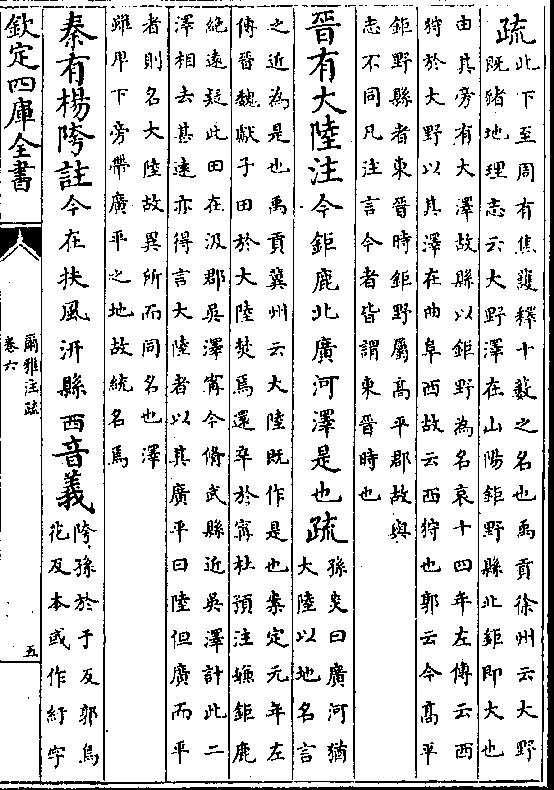 疏此下至周有焦護釋十藪之名也禹貢徐州云大野
既豬地理志云大野澤在山陽鉅野縣北鉅即大也
由其旁有大澤故縣以鉅野為名哀十四年左傳云西
狩於大野以其澤在曲阜西故云西狩也郭云今髙平
鉅野縣者東晉時鉅野屬髙平郡故與
志不同凡注言今者皆謂東晉時也
晉有大陸注今鉅鹿北廣河澤是也疏孫炎曰廣河猶
大陸以地名言
之近為是也禹貢冀州云大陸既作是也案定元年左
傳晉魏獻子田於大陸焚焉還卒於甯杜預注嫌鉅鹿
絶遠疑此田在汲郡吳澤甯今脩武縣近吳澤計此二
澤相去甚遠亦得言大陸者以其廣平曰陸但廣而平
者則名大陸故異所而同名也澤
雖卑下旁帶廣平之地故統名焉
秦有楊陓註今在扶風汧縣西音義陓孫於于反郭烏
花反本或作紆字
欽定四庫全書
爾雅注疏
卷六
五